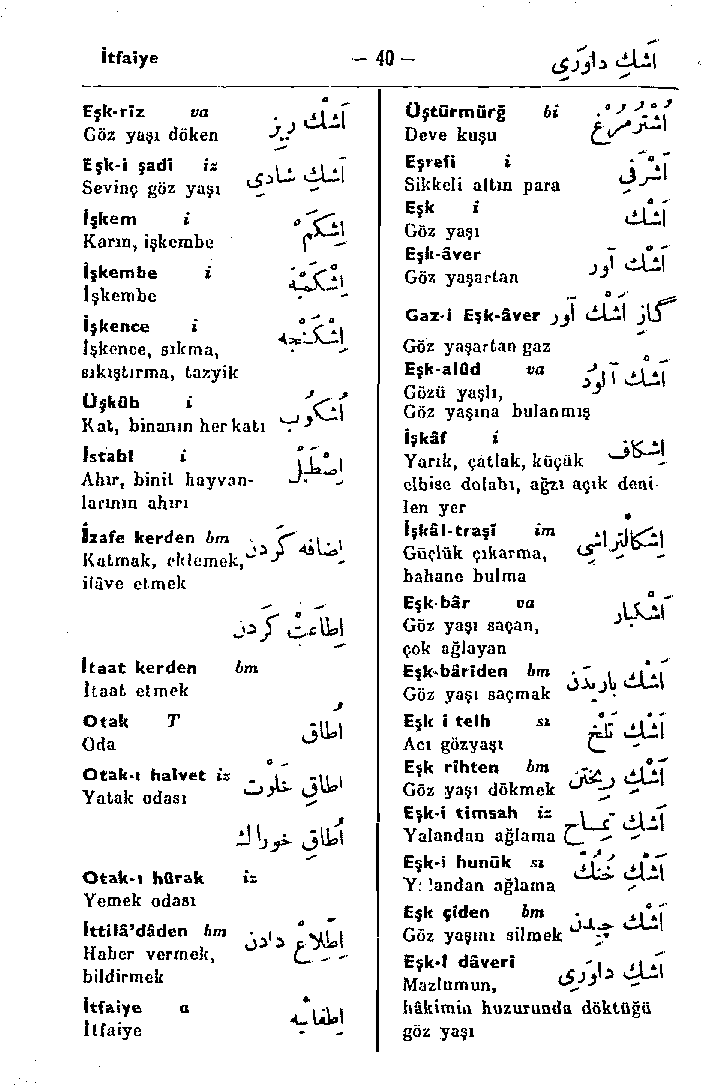 İtfaiye — 40 — اَشْكِ داوَرِى
Eşk-rîz va اَشْك ريز
Göz yaşı döken
Eşk-i şadî iz اَشْكِ شادِى
Sevinç göz yaşı
İşkem i اِشْكَمْ
Karın, işkembe
İşkembe i اِشْكَمْبَه
İşkembe
İşkence i اِشْكَنْجَه
İşkence, sıkma,
sıkıştırma, tazyik
Üşkûb i اُشْكُوب
Kat, binanın her katı
İstabl i اِصْطَبْل
Ahır, binit hayvan-
larının ahırı
İzafe kerden bm اِضافَه كَرْدَن
Katmak, eklemek,
ilâve etmek
اِطاعَتْ كَرْدَن
İtaat kerden bm
İtaat etmek
Otak T اُطاق
Oda
Otak-ı halvet iz اُطاقِ خَلْوَت
Yatak odası
اُطاقِ خوراك
Otak-ı hûrak iz
Yemek odası
İttilâ'dâden bm اِطِّلاعْ دادَن
Haber vermek,
bildirmek
İtfaiye a اِطفائيَه
İtfaiye
Üştürmürğ bi اُشْتُرْمُرْغ
Deve kuşu
Eşrefî i اَشْرَفِى
Sikkeli altın para
Eşk i اَشْك
Göz yaşı
Eşk-âver اَشْك آوَر
Göz yaşartan
Gaz-i Eşk-âver گازِ اَشْك آوَر
Göz yaşartan gaz
Eşk-alûd va اَشْك آلوُد
Gözü yaşlı,
Göz yaşına bulanmış
İşkâf i اِشكاف
Yarık, çatlak, küçük
elbise dolabı, ağzı açık deni-
len yer
İşkâl-traşî im اِشْكالتَراشِى
Güçlük çıkarma,
bahane bulma
Eşk-bâr va اَشْكبار
Göz yaşı saçan,
çok ağlayan
Eşk-bâriden bm اَشْك باريدَن
Göz yaşı saçmak
Eşk i telh sı اَشْكِ تَلْخ
Acı gözyaşı
Eşk rîhten bm اَشْك ريخْتَن
Göz yaşı dökmek
Eşk-i timsah iz اَشْكِ تِمساح
Yalandan ağlama
Eşk-i hunük sı اَشْكِ خُنُك
Yalandan ağlama
Eşk çîden bm اَشْك چيدَن
Göz yaşını silmek
Eşk-î dâverî اَشْكِ داوَرِى
Mazlumun,
hâkimin huzurunda döktüğü
göz yaşı